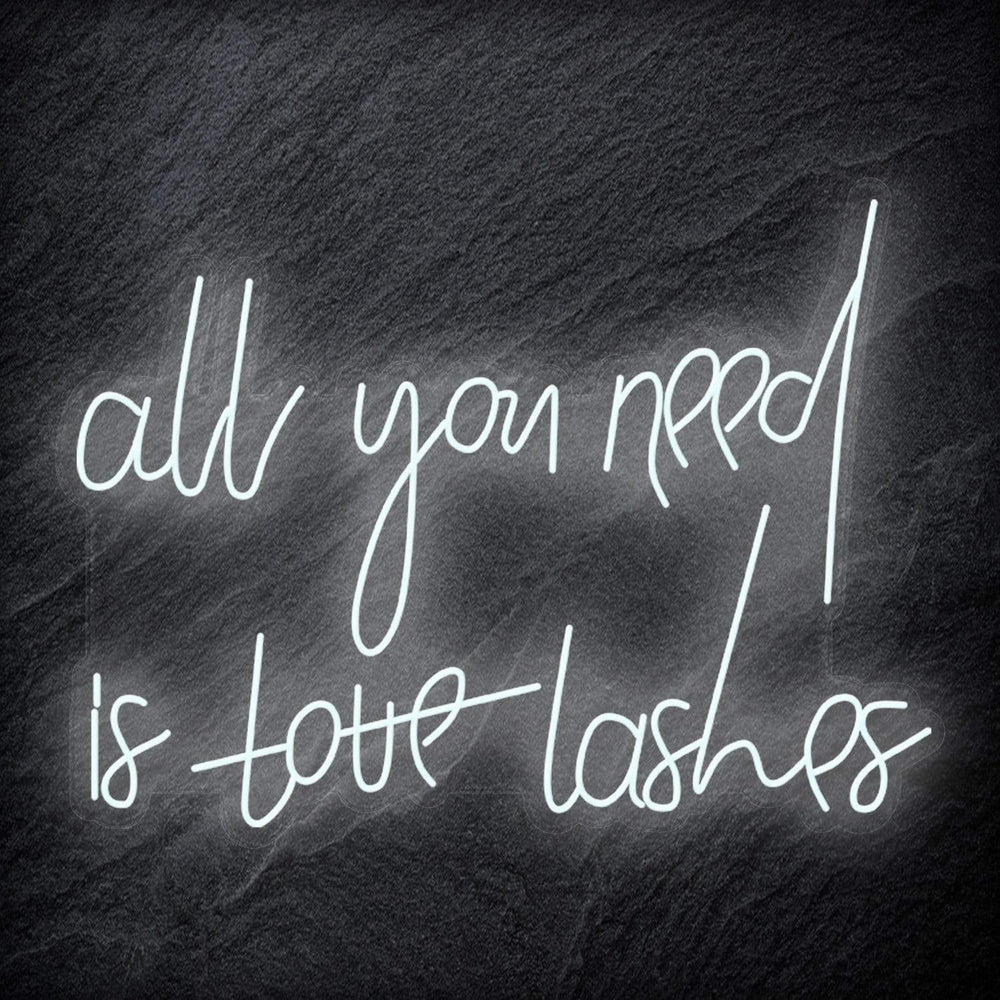 all you need
is ~~love~~ lashes